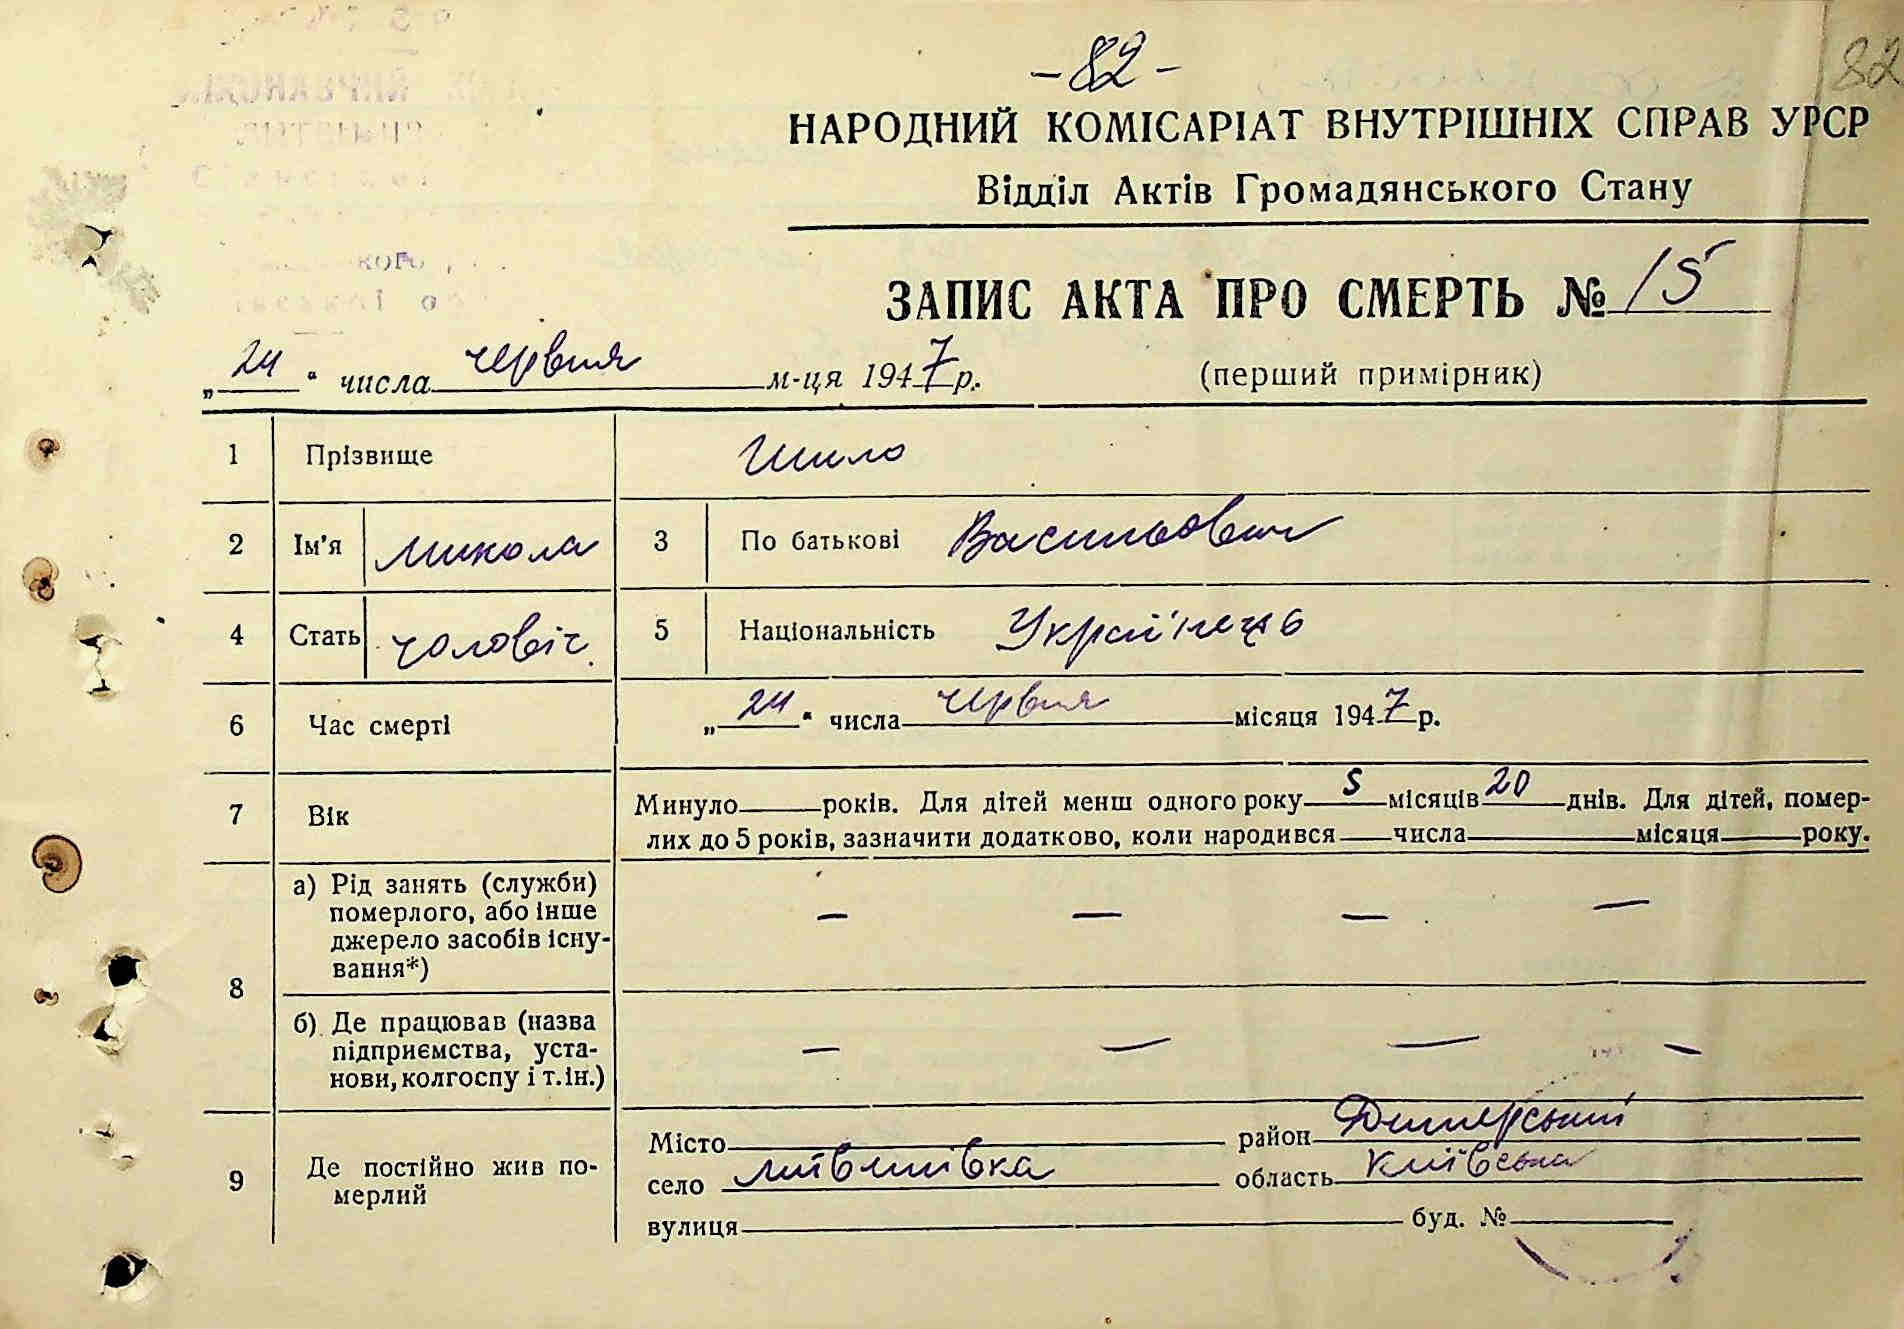 -82-
82
НАРОДНИЙ КОМІСАРІАТ ВНУТРІШНІХ СПРАВ УРСР
Відділ Актів Громадянського Стану
ЗАПИС АКТА ПРО СМЕРТЬ № 15
„24“ числа червня м-ця 1947 р. (перший примірник)
1 Прізвище Шило
2 Ім'я Микола 3 По батькові Васильович
4 Стать чоловіч. 5 Національність Українець
6 Час смерті „24“ числа червня місяця 1947 р.
7 Вік Минуло років. Для дітей менш одного року 5 місяців 20 днів. Для дітей, помер-
лих до 5 років, зазначити додатково, коли народився числа місяця року.
8 а) Рід занять (служби)
померлого, або інше
джерело засобів існу-
вання*) — — — —
б) Де працював (назва
підприємства, уста-
нови, колгоспу і т.ін.) — — — —
9 Де постійно жив по-
мерлий
Місто район Димерський
село область Київська
вулиця буд. №